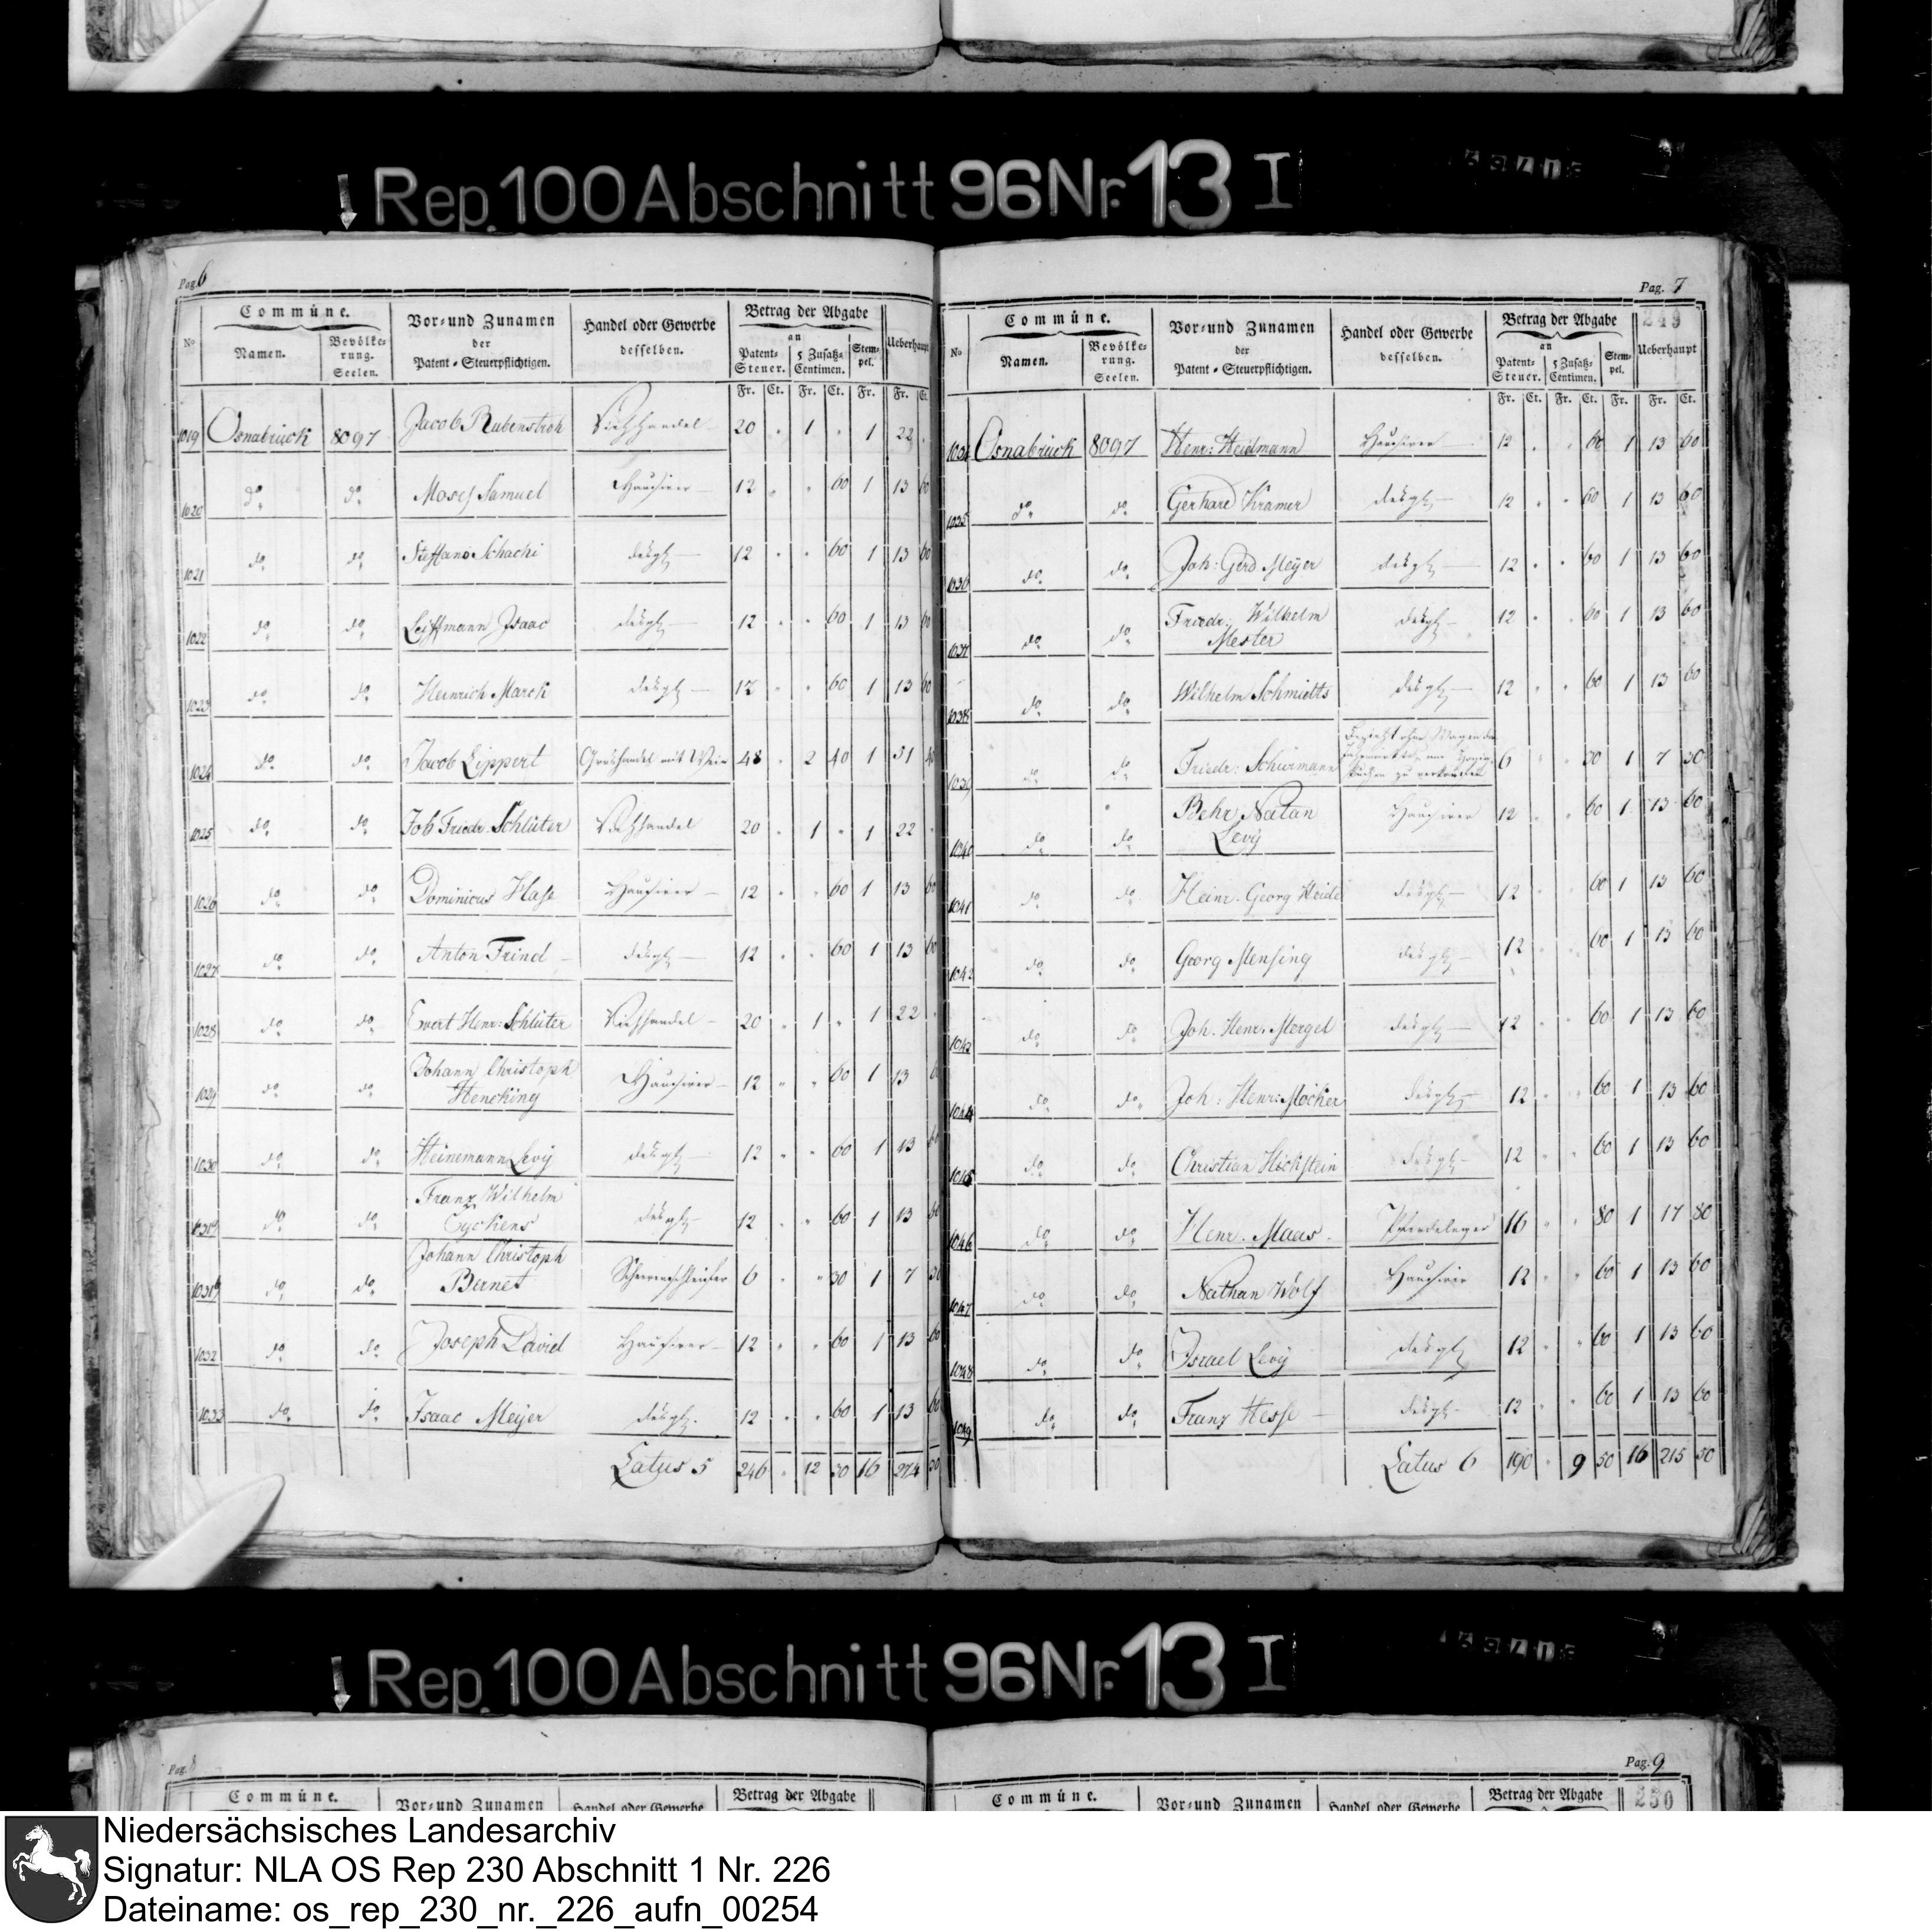 Rep. 100 Abschnitt 96 Nr. 13 I
Pag. 6
No Commüne. Vor= und Zunamen der Patent=Steuerpflichtigen. Handel oder Gewerbe desselben. Betrag der Abgabe an Ueberhaupt
Namen. Bevölke=rung. Seelen. Patent=Steuer. 5 Zusatz=Centimen. Stem=pel.
Fr. Ct. Fr. Ct. Fr. Fr. Ct.
1019 Osnabrück 8097 Jacob Rubenstroh Viehhandel 20 " 1 " 1 22 "
1020 do do Moses Samuel Hausirer 12 " " 60 1 13 60
1021 do do Steffano Schachi desgl 12 " " 60 1 13 60
1022 do do Leiffmann Isaac desgl 12 " " 60 1 13 60
1023 do do Heinrich Marck desgl 12 " " 60 1 13 60
1024 do do Jacob Lippert Groshandel mit Wein 48 " 2 40 1 51 40
1025 do do Job Friedr. Schlüter Viehhandel 20 " 1 " 1 22 "
1026 do do Dominicus Hase Hausirer 12 " " 60 1 13 60
1027 do do Anton Frind desgl 12 " " 60 1 13 60
1028 do do Evert Henr: Schlüter Viehhandel 20 " 1 " 1 22 "
1029 do do Johann Christoph
Hencking Hausirer 12 " " 60 1 13 60
1030 do do Heinemann Levÿ desgl 12 " " 60 1 13 60
1031a do do Franz Wilhelm
Eyckens desgl 12 " " 60 1 13 60
1031b do do Johann Christoph
Bernet Scheerenschleifer 6 " " 30 1 7 30
1032 do do Joseph David Hausirer 12 " " 60 1 13 60
1033 do do Isaac Meÿer desgl. 12 " " 60 1 13 60
Latus 5 246 " 12 30 16 274 30
Pag. 7
249
No Commüne. Vor= und Zunamen der Patent=Steuerpflichtigen. Handel oder Gewerbe desselben. Betrag der Abgabe an Ueberhaupt
Namen. Bevölke=rung. Seelen. Patent=Steuer. 5 Zusatz=Centimen. Stem=pel.
Fr. Ct. Fr. Ct. Fr. Fr. Ct.
1034 Osnabrück 8097 Henr: Heidmann Hausirer 12 " " 60 1 13 60
1035 do do Gerhard Kramer desgl 12 " " 60 1 13 60
1036 do do Joh: Gerd Meÿer desgl 12 " " 60 1 13 60
1037 do do Friedr: Wilhelm
Mester desgl 12 " " 60 1 13 60
1038 do do Wilhelm Schmidts desgl 12 " " 60 1 13 60
1039 do do Friedr: Schirmann Bezieht ohne Wagen die
Jahrmärkte, um Honig
kuchen zu verkaufen 6 " " 30 1 7 30
1040 do do Behr Natan
Levÿ Hausirer 12 " " 60 1 13 60
1041 do do Heinr. Georg Heide desgl 12 " " 60 1 13 60
1042 do do Georg Mensing desgl 12 " " 60 1 13 60
1043 do do Joh. Henr. Mergel desgl 12 " " 60 1 13 60
1044 do do Joh: Henr: Möcker desgl 12 " " 60 1 13 60
1045 do do Christian Höckstein desgl 12 " " 60 1 13 60
1046 do do Henr. Maas 16 " " 80 1 17 80
1047 do do Nathan Wolf Hausirer 12 " " 60 1 13 60
1048 do do Israel Levÿ desgl 12 " " 60 1 13 60
1049 do do Franz Hesse desgl 12 " " 60 1 13 60
Latus 6 190 " 9 50 16 215 50
Rep. 100 Abschnitt 96 Nr. 13 I
Pag.
Commüne. Vor= und Zunamen Handel oder Gewerbe Betrag der Abgabe
Pag. 9
250
Commüne. Vor= und Zunamen Handel oder Gewerbe Betrag der Abgabe
Niedersächsisches Landesarchiv
Signatur: NLA OS Rep 230 Abschnitt 1 Nr. 226
Dateiname: os_rep_230_nr._226_aufn_00254